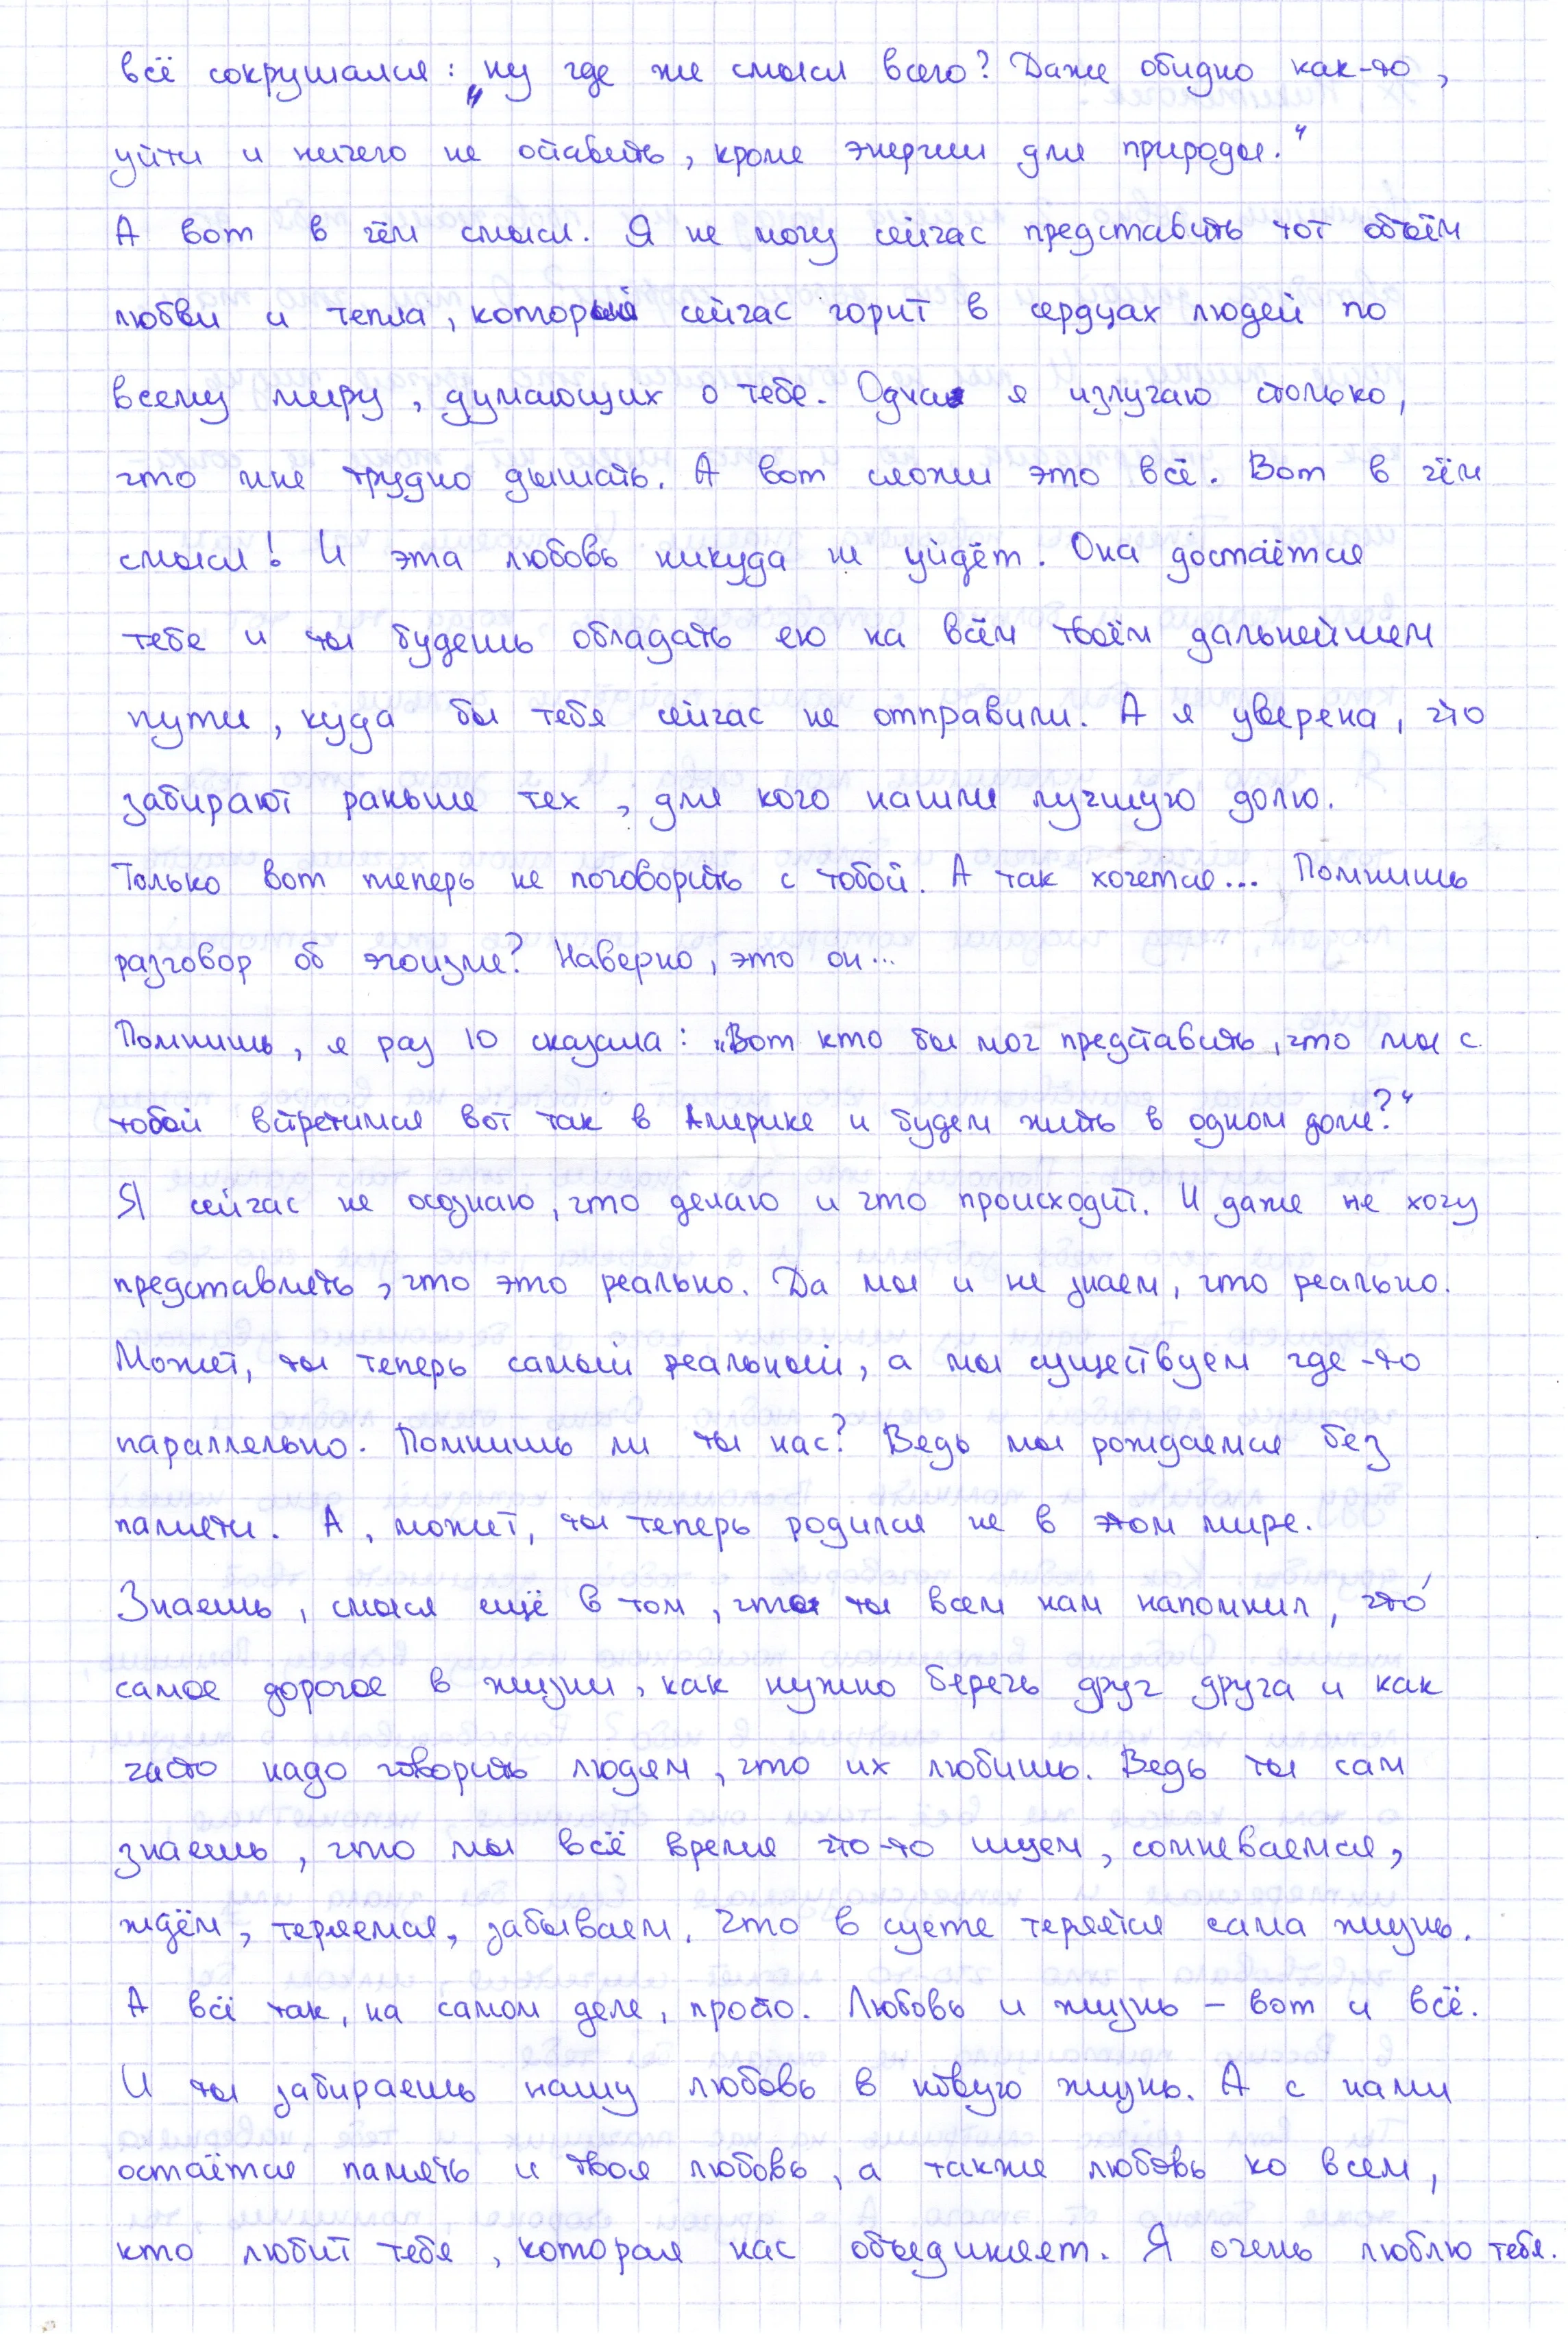 всё сокрушался: „ну где же смысл всего? Даже обидно как-то,
уйти и ничего не оставить, кроме энергии для природы."
А вот в чём смысл. Я не могу сейчас представить тот объём
любви и тепла, который сейчас горит в сердцах людей по
всему миру, думающих о тебе. Одна я излучаю столько,
что мне трудно дышать. А вот сложи это всё. Вот в чём
смысл! И эта любовь никуда не уйдёт. Она достаётся
тебе и ты будешь обладать ею на всём твоём дальнейшем
пути, куда бы тебя сейчас не отправили. А я уверена, что
забирают раньше тех, для кого нашли лучшую долю.
Только вот теперь не поговорить с тобой. А так хочется... Помнишь
разговор об эгоизме? Наверно, это он...
Помнишь, я раз 10 сказала: „Вот кто бы мог представить, что мы с
тобой встретимся вот так в Америке и будем жить в одном доме?"
Я сейчас не осознаю, что делаю и что происходит. И даже не хочу
представлять, что это реально. Да мы и не знаем, что реально.
Может, ты теперь самый реальный, а мы существуем где-то
параллельно. Помнишь ли ты нас? Ведь мы рождаемся без
памяти. А, может, ты теперь родился не в этом мире.
Знаешь, смысл ещё в том, что ты всем нам напомнил, что́
самое дорогое в жизни, как нужно беречь друг друга и как
часто надо говорить людям, что их любишь. Ведь ты сам
знаешь, что мы всё время что-то ищем, сомневаемся,
ждём, теряемся, забываем, что в суете теряется сама жизнь.
А всё так, на самом деле, просто. Любовь и жизнь – вот и всё.
И ты забираешь нашу любовь в новую жизнь. А с нами
остаётся память и твоя любовь, а также любовь ко всем,
кто любит тебя, которая нас объединяет. Я очень люблю тебя.